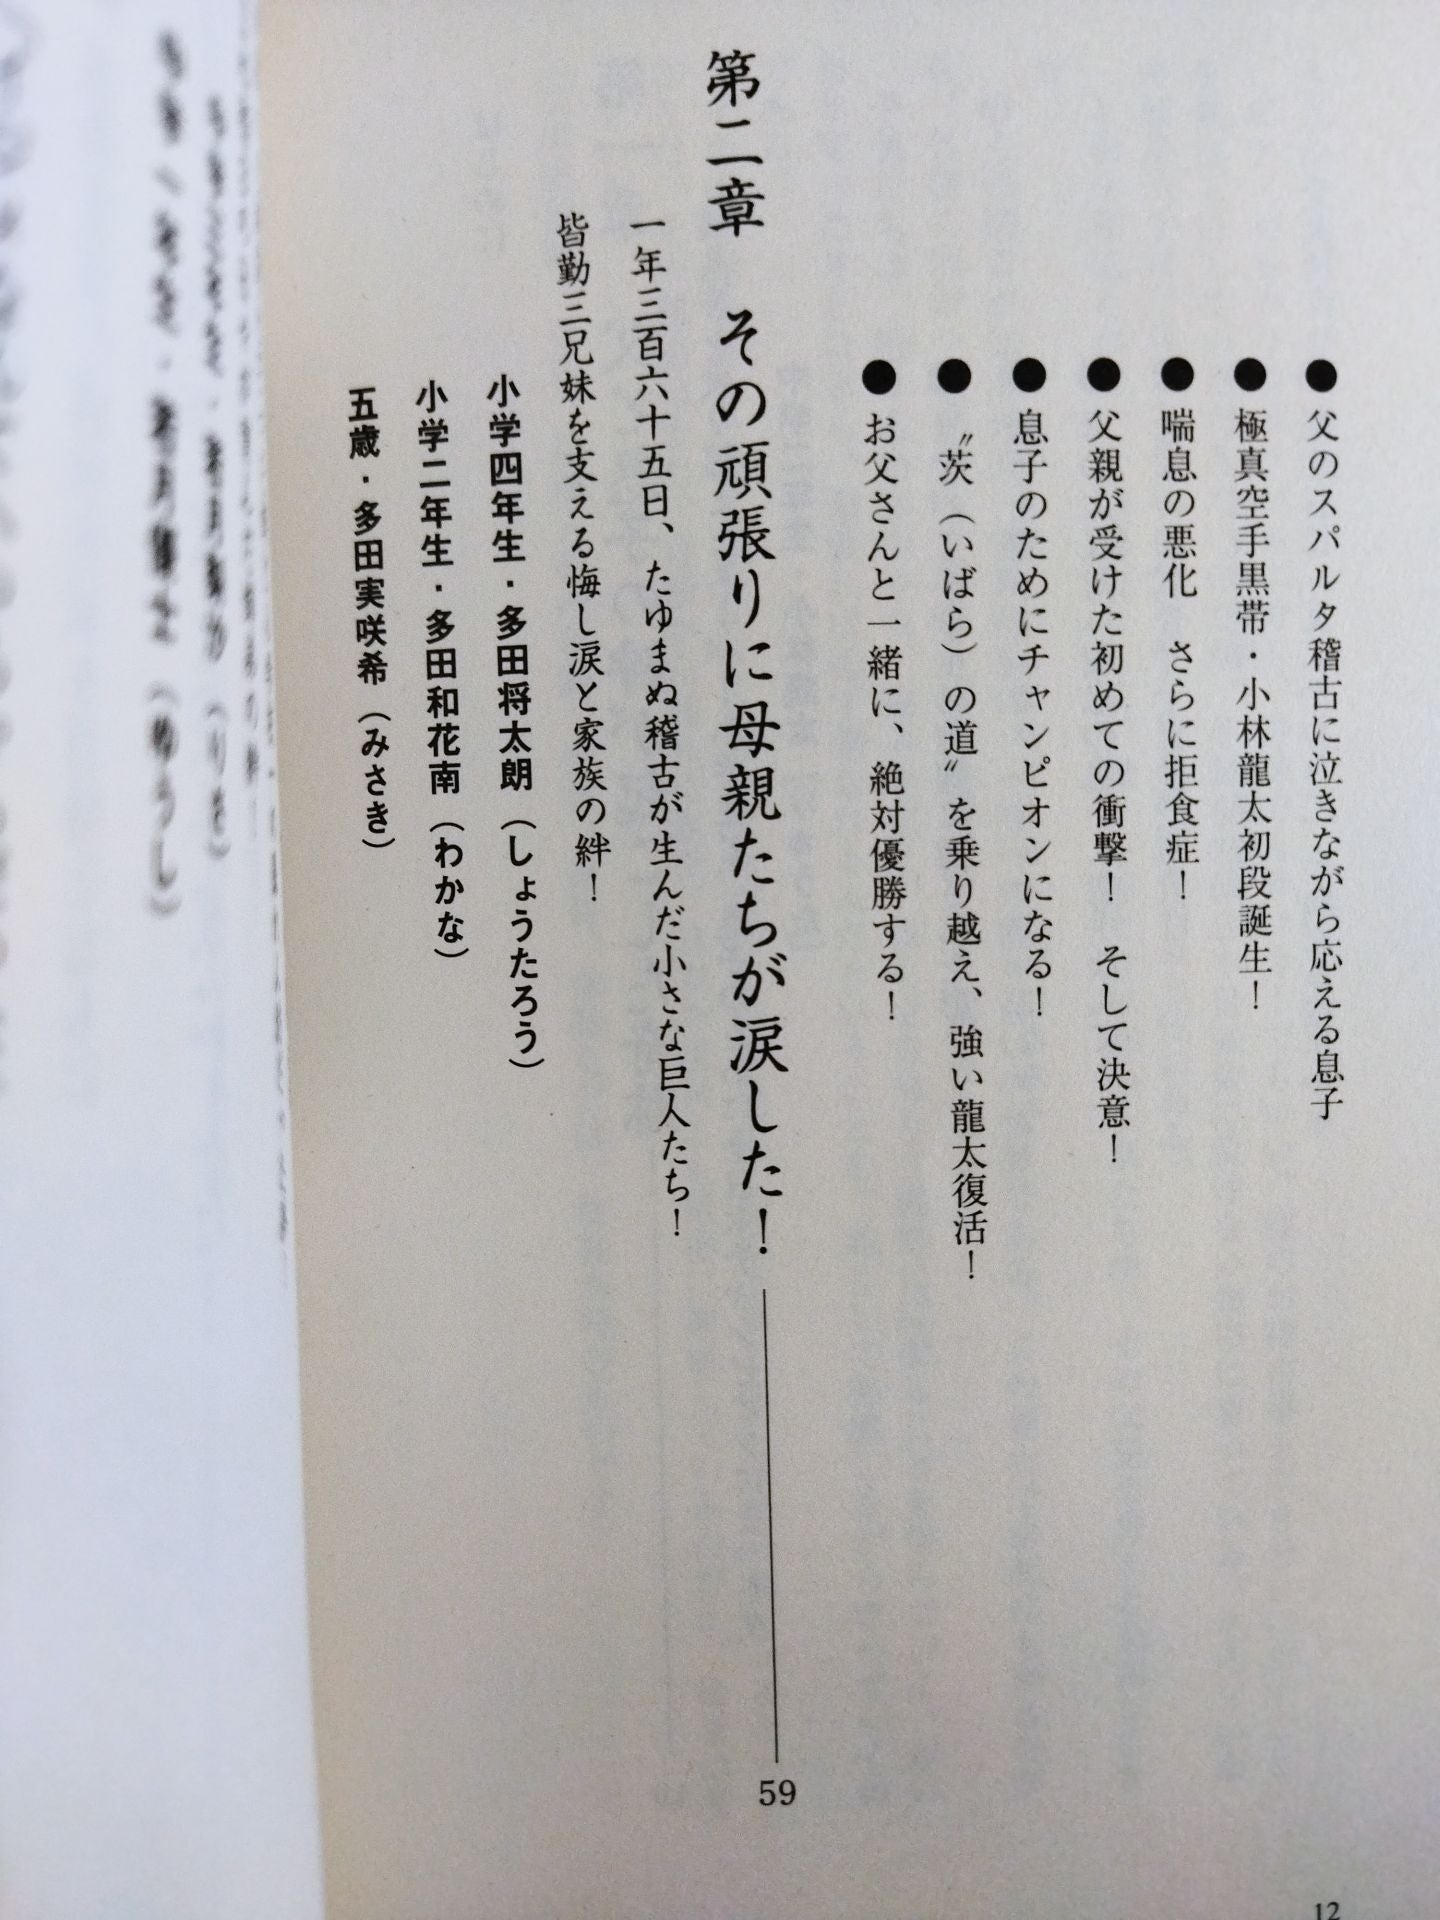 ●父のスパルタ稽古に泣きながら応える息子
●極真空手黒帯・小林龍太初段誕生！
●喘息の悪化　さらに拒食症！
●父親が受けた初めての衝撃！　そして決意！
●息子のためにチャンピオンになる！
●〝茨（いばら）の道〟を乗り越え、強い龍太復活！
●お父さんと一緒に、絶対優勝する！
第二章　その頑張りに母親たちが涙した！ 59
一年三百六十五日、たゆまぬ稽古が生んだ小さな巨人たち！
皆勤三兄妹を支える悔し涙と家族の絆！
小学四年生・多田将太朗（しょうたろう）
小学二年生・多田和花南（わかな）
五歳・多田実咲希（みさき）
12